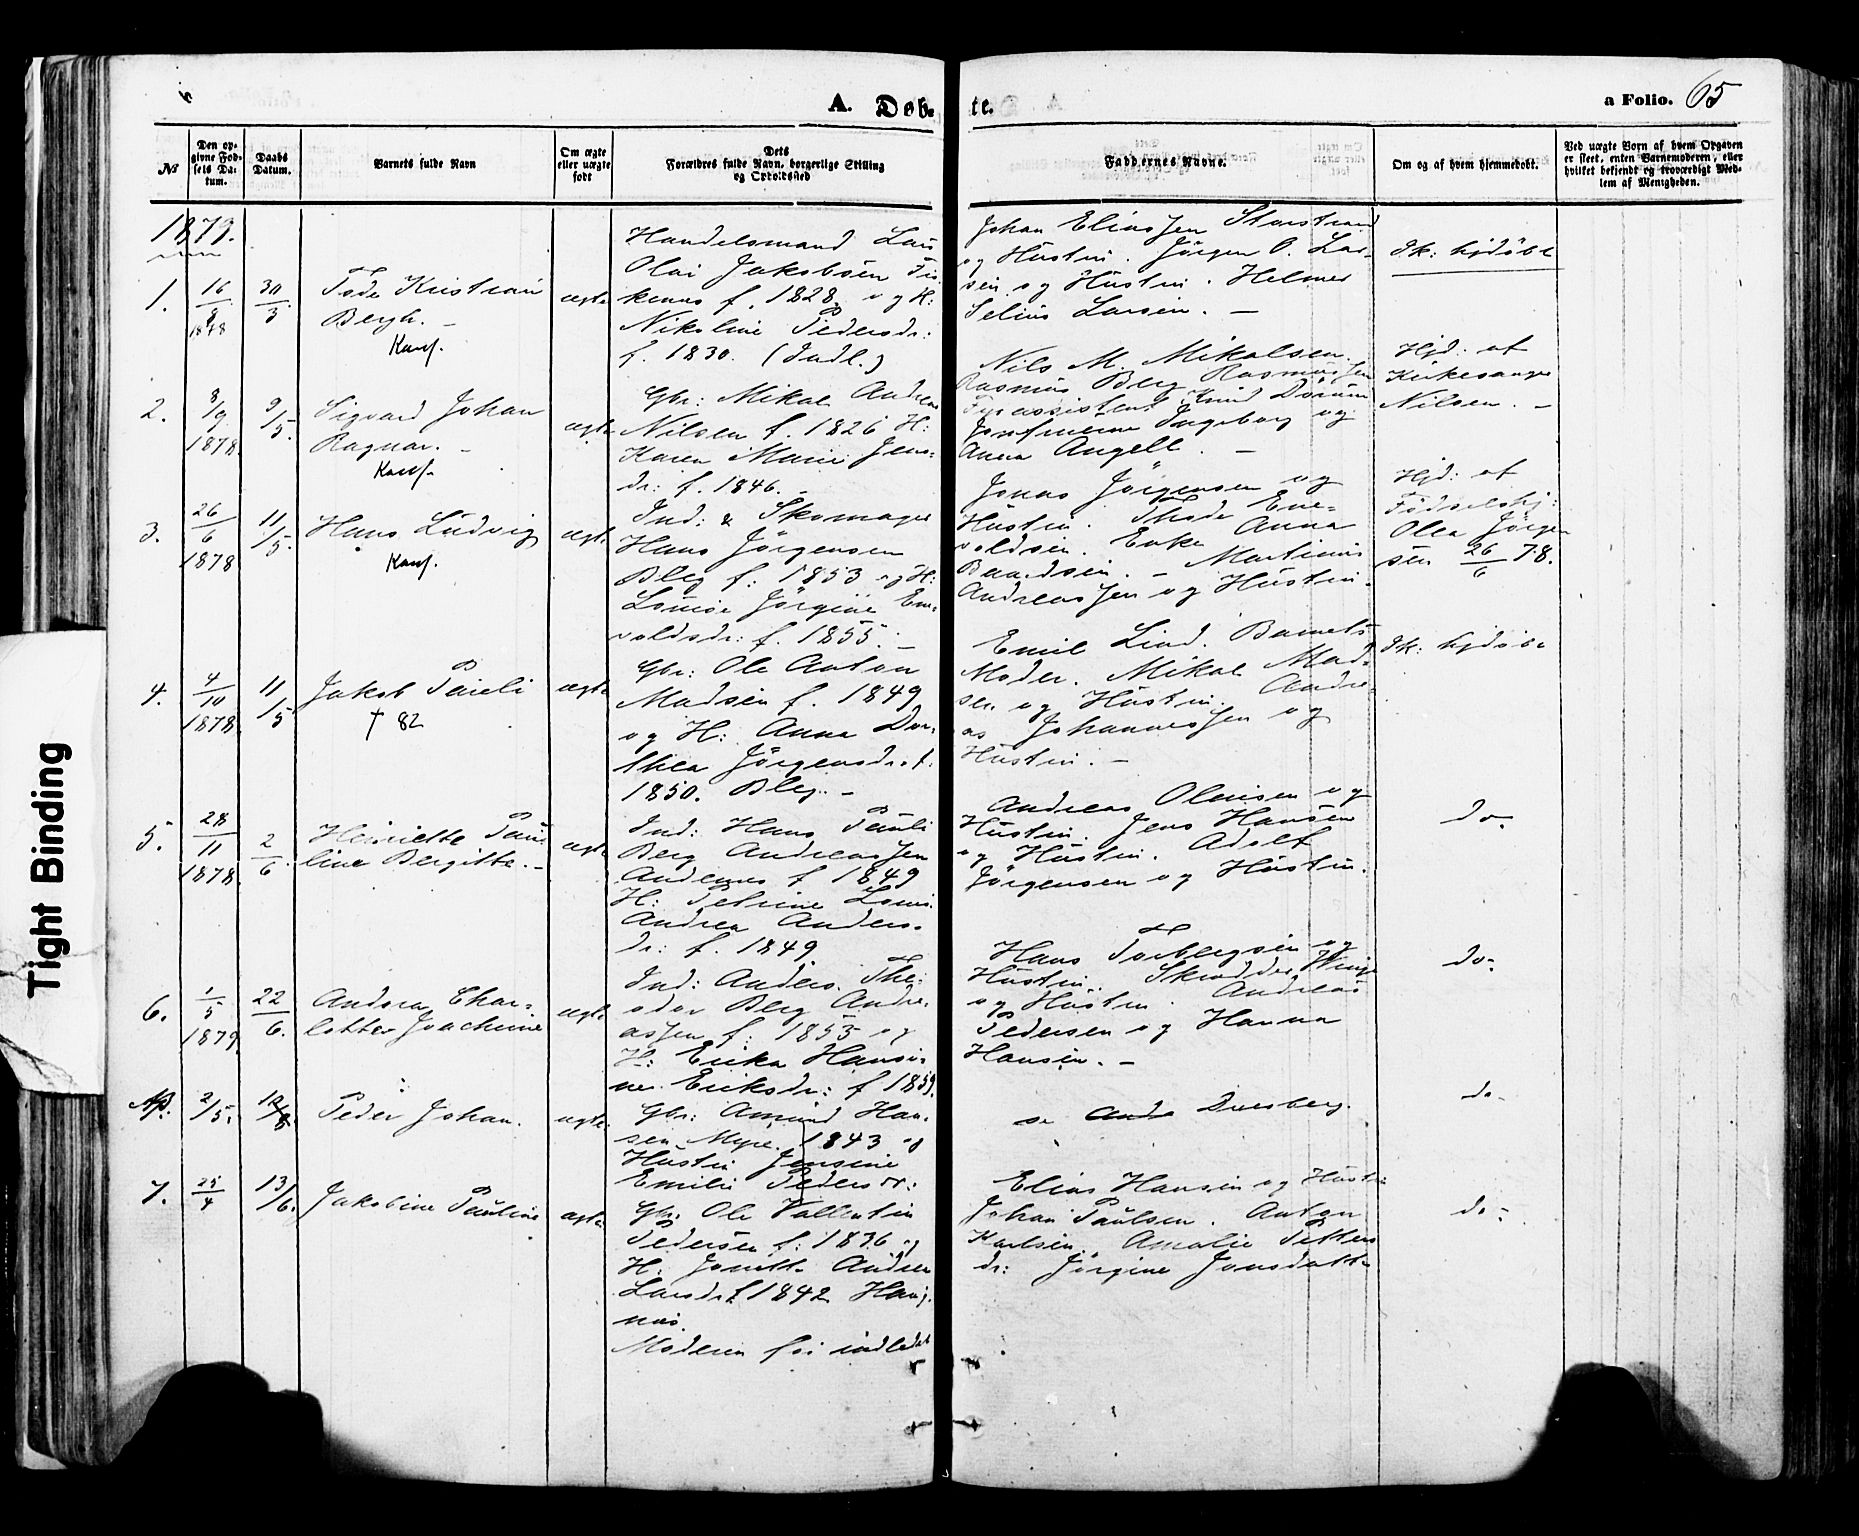 A. Døb-
te.
a Folio. 65
№
Den op-
givne Fød-
sels Da-
tum.
Daabs
Datum.
Barnets fulde Navn
Om ægte
eller uægte
født
Dets
Forældres fulde Navn, borgerlige Stilling
og Opholdssted
Faddernes Navne.
Om og af hvem hjemmedøbt.
Ved uægte Børn af hvem Opgaven
er skeet, enten Barnemoderen, eller
hvilket bekjendt og troværdigt Med-
lem af Menigheden.
1879.
1.
16/8
1878
30/3
Tode Kristian
Bergh. -
Konf.
ægte
Handelsmand Lars
Olai Jakobsen Fis
kenes f. 1828. og H:
Nikoline Pedersdr:
f. 1830. (Indl.)
Johan Eliassen Storstrand
og Hustru. Jörgen O. Lar-
sen og Hustru. Helmer
Selius Larsen. -
Ik: hjdöbt
2.
8/9
1878
9/5.
Sigvard Johan
Ragnar. -
Konf.
ægte
Gbr: Mikal Andreas
Nilsen f. 1826 H:
Karen Marie Jens-
dr: f. 1846. -
Nils M. Mikalsen.
Rasmus Berg Rasmussen
Fyrassistent Knud Dörum
Jomfruerne Ingeborg og
Anna Angell. -
Hjd: af
Kirkesanger
Nilsen. -
3.
26/6
1878
11/5.
Hans Ludvig
Konf.
ægte
Ind: & Skomager
Hans Jörgensen
Bleg f: 1853 og H:
Lovise Jörgine Ene-
voldsdr: f. 1855. -
Jonas Jörgensen og
Hustru. Thode Ene-
voldsen. Enke Anna
Baardsen. - Martinus
Andreassen og Hustru.
Hjd: af
Födselshj:
Olea Jörgen
sen 26/6 78.
4.
4/10
1878.
11/5
Jakob Pauli
† 82
ægte
Gbr: Ole Anton
Madsen f. 1849
og H: Anna Dor-
thea Jörgensdr. f.
1850. Bleg. -
Emil Lind. Barnets
Moder. Mikal Mad-
sen og Hustru. Andre-
as Johannessen og
Hustru. -
Ik: hjdöbt
5.
28/11
1878.
2/6.
Henriette Pau
line Bergitte. -
ægte
Ind: Hans Pauli
Berg Andreassen
Andenes f. 1849
H: Petrine Lovis.
Andrea Anders-
dr: f. 1849.
Andreas Olausen og
Hustru. Jens Hansen
og Hustru. Adolf
Jörgensen og Hustru.
do-
6.
1/5
1879.
22/6.
Andrea Char-
lotte Joachime
ægte
Ind: Anders The-
odor Berg Andre-
assen f: 1853 og
H: Erika Hansi-
ne Eriksdr: f 1859.
Hans Torbergsen og
Hustru. Skrædder Winge
og Hustru. Andreas
Pedersen og Hanna
Hansen. -
do-
2/5.
Peder Johan.
ægte.
Gbr: Amund Han-
sen Myre. 1843 og
Hustru Jensine
Emilie Pedersdr:
se Dverberg.
do-
7.
25/4
13/6.
Jakobine Pauline
ægte
Gbr: Ole Vallentin
Pedersen f: 1836 og
H: Andrea
Larsdr. f 1842 Haug-
nes.
Moderen för indledet
Elias Hansen og Hustru
Johan Paulsen. Anton
Karlsen. Amalie Petters
dr: Jörgine Jonsdatter
do-
Tight Binding